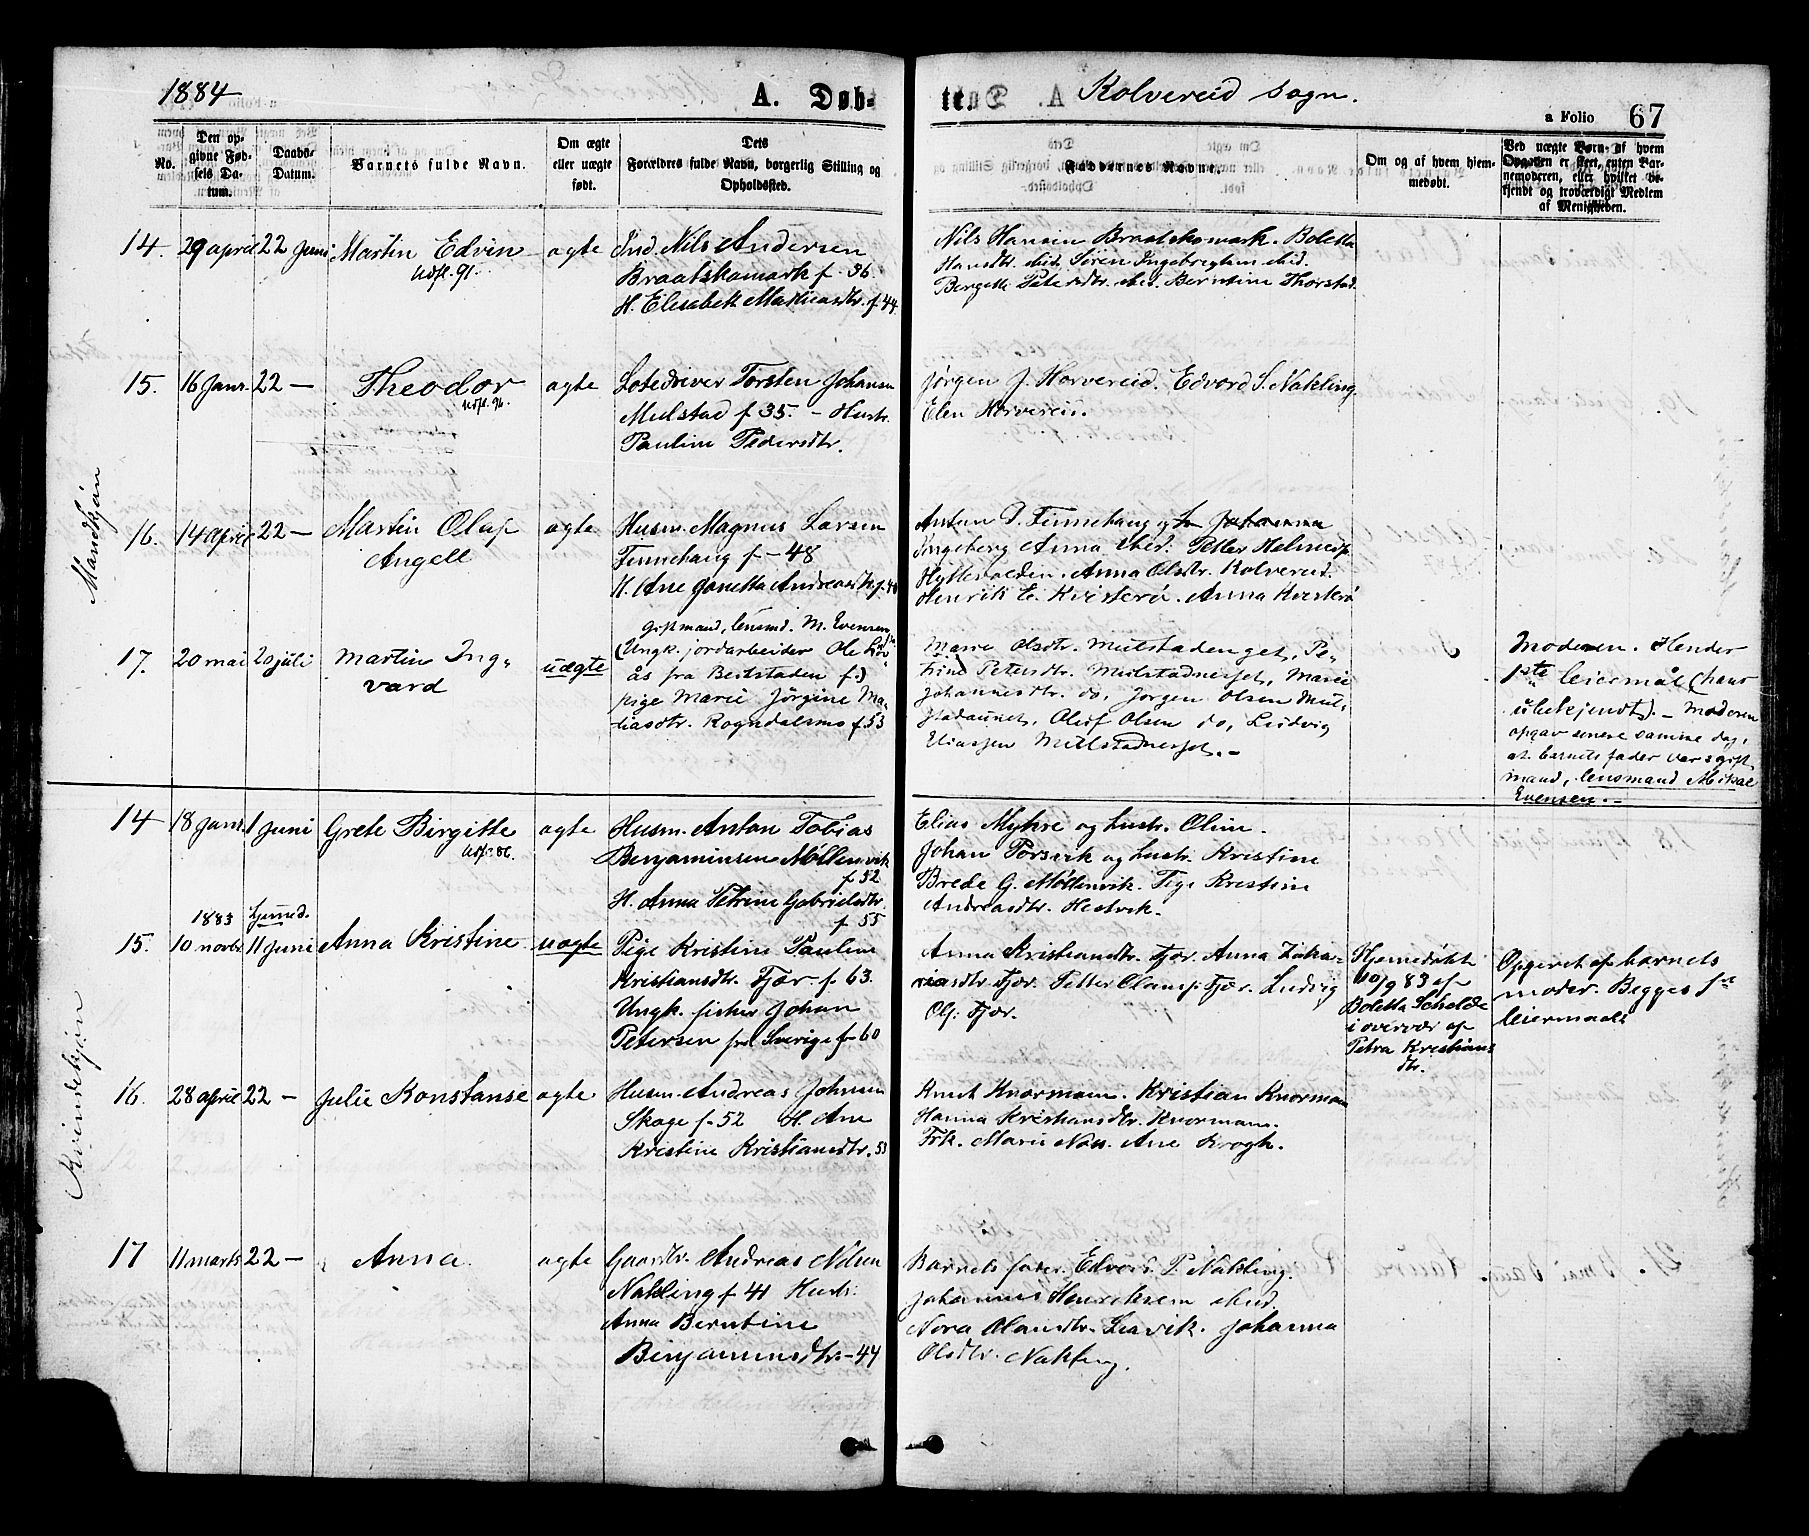 1884
A. Døb-
te.
Kolvereid sogn.
a Folio 67
No.
Den op-
givne Fød-
sels Da-
tum.
Daabs-
Datum.
Barnets fulde Navn.
Om ægte
eller uægte
født.
Dets
Forældres fulde Navn, borgerlig Stilling og
Opholdssted.
Faddernes Navne.
Om og af hvem hjem-
medøbt.
Ved uægte Børn- af hvem
Opgaven er skeet, enten Bar-
nemoderen, eller hvilket be-
kjendt og troværdigt Medlem
af Menigheden.
Mandkjøn
14. 29 april 22 Juni Martin Edvin
Udfl. 91.
ægte
Ind. Nils Andersen
Braatskamark f. 36
H. Elisabeth Mathiasdtr f. 44
Nils Hansen Braatskamark. Boletta
Hansdtr. ibid. Sören Ingebrigtsen ibid.
Bergette Petersdtr. ibid. Berntine Thorstad.
15. 16 Janr. 22 — Theodor
Udfl. 96.
ægte
Torsten Johansen
Mulstad f 35. - Hustr.
Pauline Pedersdtr.
Jørgen J. Horvereid. Edvard S. Nakling.
Elen Horvereid.
16. 14 april 22 — Martin Oluf
Angell
ægte
Husm. Magnus Larsen
Finnehaug f - 48
H. Ane Janetta Andreasdtr f. 48
Anton D. Finnehaug og Johanna
Ingeberg Anna ibid. Petter
Anna Olsdtr. Kolvereid.
Henrik E. Kvisterö. Anna Kvisterö
17. 20 mai 20 juli Martin Ing-
vard
uægte
Giftmand, lensmd. M. Evensen
(Ungk. jordarbeider Ole
ås fra Beitstaden f.)
pige Marie Jørgine Ma-
tiasdtr. Rogndalsmo f. 53
Marie Olsdtr. Mulstadenget, Pe-
trine Petersdtr. Mulstadneset, Marie
Johannesdtr. do, Jørgen Olsen Mul-
stadaunet, Oluf Olsen do, Ludvig
Eliassen Mulstadneset. -
Moderen. Hendes
1ste leiermål (hans
ubekjendt). - Moderen
opgav senere samme dag,
at barnets fader var gift
mand, lensmand Mikal
Evensen. -
Kvindekjøn
14 18 Janr. 1 Juni Grete Birgitte
ægte
Husm. Anton Tobias
Benjaminsen Möllenvik
f 52
H. Anna Petrine Gabrielsdtr.
f 55
Elias Myhre og hustr. Oline.
Johan Torsvik og hustr. Kristine
Brede G. Möllenvik. Pige Kristine
Andreasdtr. Hestvik.
15. 1883
10 novbr. Hjemed.
11 Juni Anna Kristine
uægte
Pige Kristine Pauline
Kristiansdtr. Fjær. f 63.
Ungk. fisker Johan
Petersen fra Sverige f 60
Anna Kristiansdtr. Fjær. Anna Zaka-
riasdtr Fjær. Petter Olausj. Fjær. Ludvig
Olj. Fjær.
Hjemedöbt
10/9 83 af
Boletta Schelde
i overvær af
Petra Kristians
dtr.
Opgivet af barnets
moder. Begges 1ste
leiermaal
16. 28 april 22 — Julie Konstanse
ægte
Husm. Andreas Johnsen
Skage f. 52 H. Ane
Kristine Kristiansdtr. 53
Knut Knormann. Kristian Knorman
Hanna Kristiansdtr. Knormann.
Frk. Marie Ane Krogh.
17 11 marts 22 — Anna.
ægte
Gaardbr. Andreas Nilsen
Nakling f 41 Hustr:
Anna Berntine
Benjaminsdtr - 44
Barnets fader. Edvard P. Nakling.
Johannes Henriksen ibid.
Nora Olausdtr. Johanna
Olsdtr. Nakling.